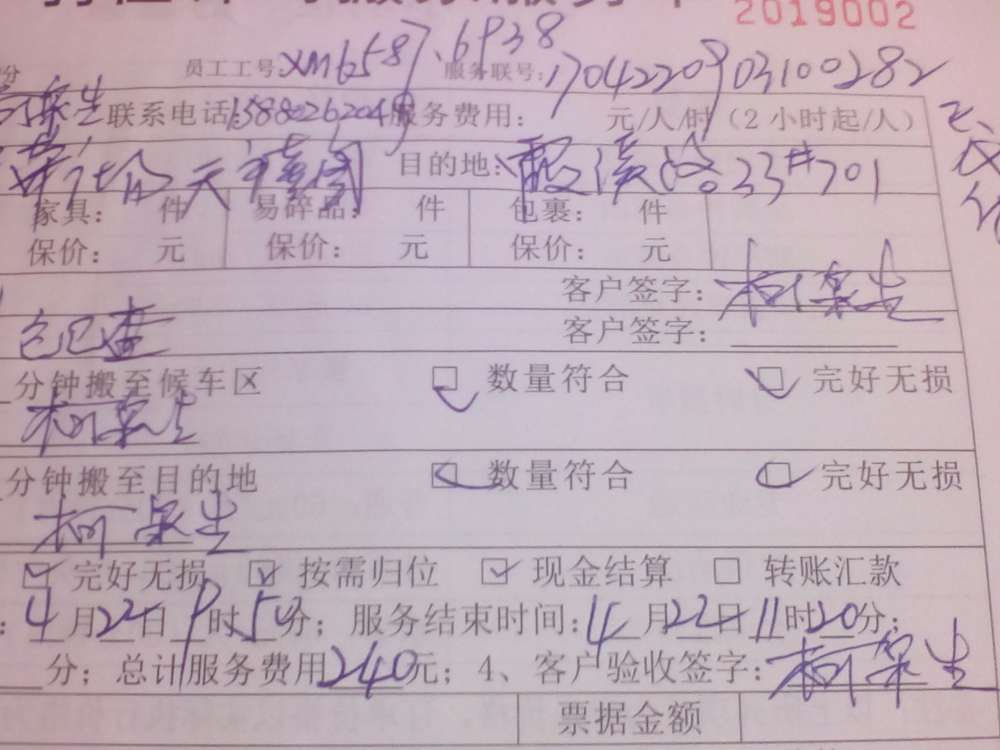 2019002
员工工号:XM6587.6938 服务联号:1704220903100282
联系电话:15880262048 服务费用: 元/人/时（2小时起/人）
目的地: 霞溪路33#701
家具: 件 易碎品: 件 包裹: 件
保价: 元 保价: 元 保价: 元
客户签字: 柯泉生
已巳查 客户签字:
分钟搬至候车区 数量符合 完好无损
柯泉生
分钟搬至目的地 数量符合 完好无损
柯泉生
完好无损 按需归位 现金结算 转账汇款
4月22日9时50分; 服务结束时间:4月22日11时20分;
分; 总计服务费用240元; 4、客户验收签字: 柯泉生
票据金额